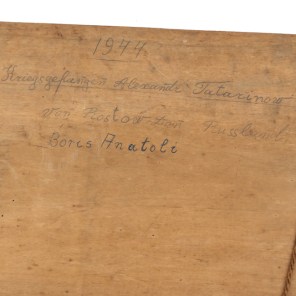 1944
Kriegsgefangen Alexandr Tatarinow
von Rostow Don Russland
Boris Anatoli